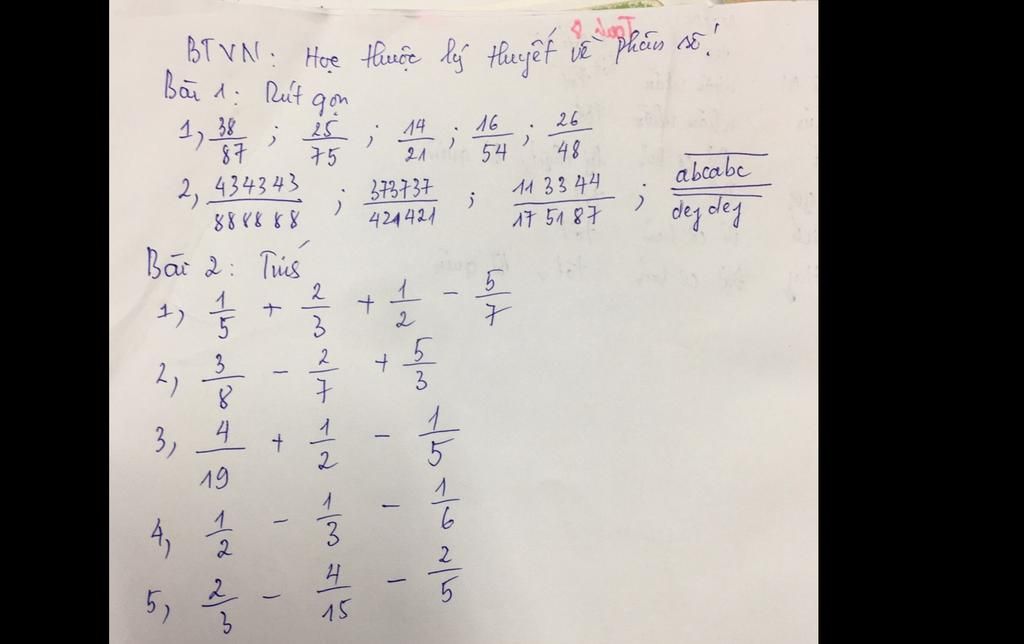 BTVN: Học thuộc lý thuyết về phân số!
Bài 1: Rút gọn
1, 38/87 ; 25/75 ; 14/21 ; 16/54 ; 26/48
2, 434343/888888 ; 373737/421421 ; 113344/175187 ; abcabc/deg deg
Bài 2: Tính
1, 1/5 + 2/3 + 1/2 - 5/7
2, 3/8 - 2/7 + 5/3
3, 4/19 + 1/2 - 1/5
4, 1/2 - 1/3 - 1/6
5, 2/3 - 4/15 - 2/5